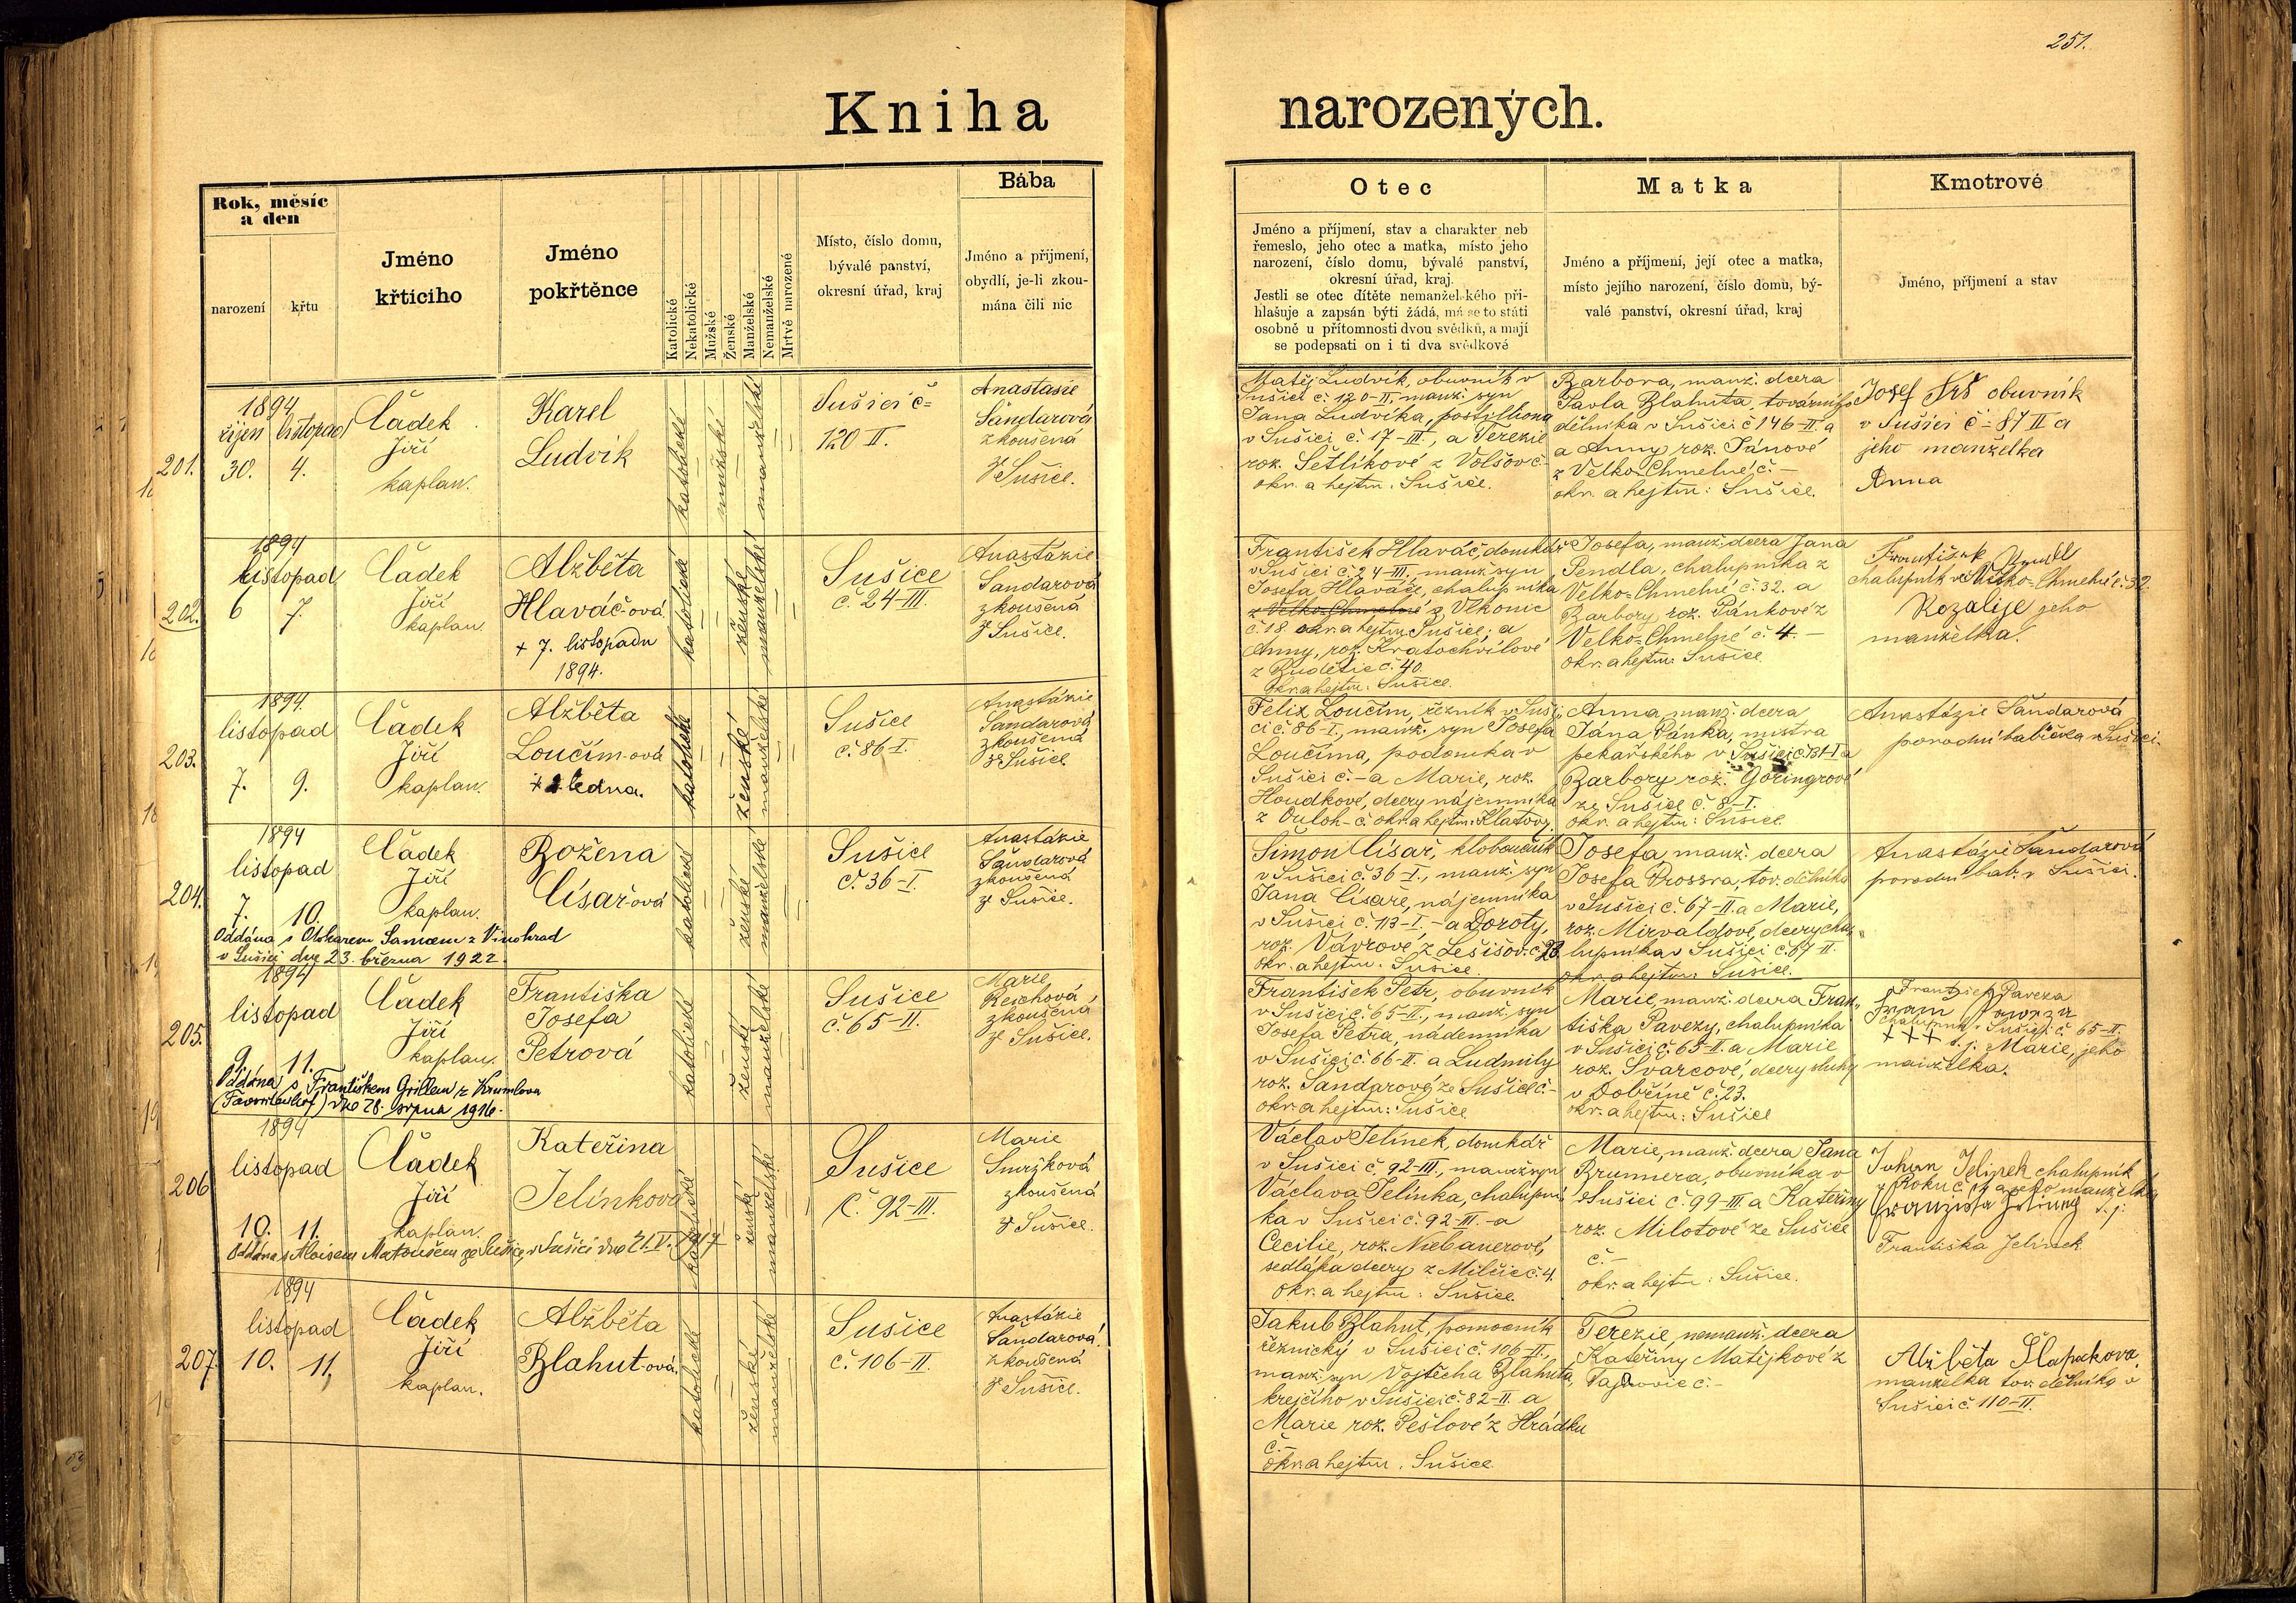 251.
Kniha narozených.
Rok, měsíc
a den
narození
křtu
Jméno
křticího
Jméno
pokřtěnce
Katolické
Nekatolické
Mužské
Ženské
Manželské
Nemanželské
Mrtvě narozené
Místo, číslo domu,
bývalé panství,
okresní úřad, kraj
Bába
Jméno a přijmení,
obydlí, je-li zkou-
mána čili nic
Otec
Jméno a příjmení, stav a charakter neb
řemeslo, jeho otec a matka, místo jeho
narození, číslo domu, bývalé panství,
okresní úřad, kraj.
Jestli se otec dítěte nemanželského při-
hlašuje a zapsán býti žádá, má se to státi
osobně u přítomnosti dvou svědků, a mají
se podepsati on i ti dva svědkové
Matka
Jméno a příjmení, její otec a matka,
místo jejího narození, číslo domu, bý-
valé panství, okresní úřad, kraj
Kmotrové
Jméno, příjmení a stav
201.
1894
říjen listopad
30. 4.
Čádek
Jiří
kaplan.
Karel
Ludvík
katolické
mužské
manželské
Sušici č=
120 II.
Anastasie
Šandarová
zkoušená
ze Sušice.
Matěj Ludvík, obuvník v
Sušici č. 120-II, manž. syn
Jana Ludvíka, postilliona
v Sušici č. 17-III., a Terezie
roz. Šetlíkové z Volšov č.-
okr. a hejtm: Sušice.
Barbora, manž. dcera
Pavla Blahuta, továrního
dělníka v Sušici č 146-II. a
a Anny roz. Pánové
z Velko-Chmelné č.-
okr. a hejtm: Sušice.
Josef Srš obuvník
v Sušici č= 87 II a
jeho manželka
Anna
202.
1894
listopad
6 7.
Čádek
Jiří
kaplan.
Alžběta
Hlaváč-ová
+ 7. listopadu
1894.
katolické
ženské
manželské
Sušice
č. 24-III.
Anastázie
Šandarová
zkoušená
z Sušice.
František Hlaváč, domkář
v Sušici č. 24-III, manž. syn
Josefa Hlaváče, chalupníka
z Velko-Chmelné z Vlkonic
č. 18. okr. a hejtm Sušice; a
Anny, roz. Kratochvílové
z Budětic č. 40.
Okr. a hejtm: Sušice.
Josefa, manž. dcera Jana
Pendla, chalupníka z
Velko-Chmelné č. 32. a
Barbory roz. Pánkové z
Velko-Chmelné č. 4.-
okr. a hejtm: Sušice
František
chalupník v Velko-Chmelné č. 32.
Rozalije jeho
manželka.
203.
1894
listopad
7. 9.
Čádek
Jiří
kaplan.
Alžběta
Loučím-ová
ledna.
katolické
ženské
manželské
Sušice
č. 86-I.
Anastázie
Šandarová
zkoušená
ze Sušice.
Felix Loučím, řezník v Suši-
ci č. 86-I., manž. syn Josefa
Loučíma, podomka v
Sušici č.-a Marie, roz.
Houdkové, dcery nájemníka
z Ouloh-č. okr. a hejtm: Klatovy.
Anna, manž. dcera
Jána Pánka, mistra
pekařského v Sušici
Barbory roz. Göringrové
ze Sušice č. 8-I.
okr. a hejtm: Sušice
Anastázie Šandarová
porodní babička v Sušici.
204.
1894
listopad
7. 10.
Čádek
Jiří
kaplan.
Božena
Císař-ová
Oddána s Otokarem Samcem z Vinohrad
v Sušici dne 23. března 1922.
katolické
ženské
manželské
Sušice
č. 36-I.
Anastázie
Šandarová
zkoušená
ze Sušice.
Šimon Císař, kloboučník
v Sušici č. 36-I., manž. syn
Jana Císaře, nájemníka
v Sušici č. 113-I.-a Doroty,
roz. Vávrové z Lešišov. č. 23.
okr. a hejtm: Sušice.
Josefa, manž. dcera
Josefa Prossra, tov. dělníka
v Sušici č. 67-II. a Marie,
roz. Mirvaldové, dcery cha-
lupníka v Sušici č. 87-II.
okr. a hejtm: Sušice.
Anastázie Šandarová
porodní bab. v Sušici.
205.
1894
listopad
9. 11.
Čádek
Jiří
kaplan.
Františka
Josefa
Petrová
Oddána s Františkem Grillem z Krumlova
(Favoritenhof) dne 28. srpna 1916.
katolické
ženské
manželské
Sušice
č. 65-II.
Marie
Reichová
zkoušená
ze Sušice.
František Petr, obuvník
v Sušici č. 65-II., manž. syn
Josefa Petra, nádenníka
v Sušici č. 66-II. a Ludmily
roz. Šandarové ze Sušice č.-
okr. a hejtm: Sušice
Marie, manž. dcera Fran-
tiška Pavezy, chalupníka
v Sušici č. 65-II. a Marie
roz. Švarcové, dcery sluhy
v Dobříně č. 23.
okr. a hejtm: Sušice
František Paveza
chalupník v Sušici č 65-II.
+++ t.j. Marie, jeho
manželka.
206
1894
listopad
10. 11.
Čádek
Jiří
kaplan.
Kateřina
Jelínková
Oddána s Aloisem Matoušem ze Sušice, v Sušici dne 21.V. 1917
katolické
ženské
manželské
Sušice
č. 92-III.
Marie
Smržková
zkoušená
z Sušice.
Václav Jelínek, domkář
v Sušici č. 92-III., manž. syn
Václava Jelínka, chalupní-
ka v Sušici č. 92-III.-a
Cecilie, roz. Niebauerové,
sedláka dcery z Milčic č. 4.
Okr. a hejtm: Sušice.
Marie, manž. dcera Jana
Brunnera, obuvníka v
Sušici č. 99-III. a Kateřiny
roz. Milotové ze Sušice
č.-
okr. a hejtm: Sušice.
Johan Jelinek chalupník
z Roku č. a jeho manželka
Franziska Jelinek t.j:
Františka Jelinek
207.
1894
listopad
10. 11.
Čádek
Jiří
kaplan.
Alžběta
Blahut-ová
katolické
ženské
manželské
Sušice
č. 106-II.
Anastázie
Šandarová
zkoušená
z Sušice.
Jakub Blahut, pomocník
řeznický v Sušici č. 106-II.,
manž. syn Vojtěcha Blahuta,
krejčího v Sušici č. 82-II. a
Marie roz. Pešlové z Hrádku
č.-
okr. a hejtm: Sušice.
Terezie, nemanž. dcera
Kateřiny Matějkové z
č.-
Alžběta Šlapakova,
manželka tov. dělníka v
Sušici č. 110-II.